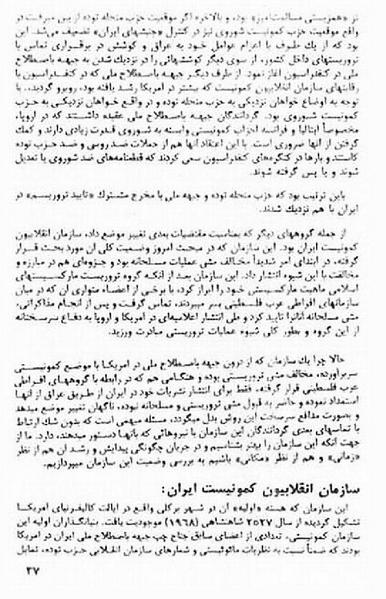 تز «همزیستی مسالمت‌آمیز» بوده، و بالاخره اگر موقعیت حزب منحله توده از بین میرفت در
واقع موقعیت حزب کمونیست شوروی نیز در کنترل «جنبشهای ایران» تضعیف می‌شد. این
بود که از یک طرف با اعزام عوامل خود به عراق و کوشش در برقراری تماس با
تروریستهای داخل کشور، از سوی دیگر کوششهائی را در نزدیک شدن به جبهه باصطلاح
ملی در کنفدراسیون آغاز نمود. از طرف دیگر جبهه باصطلاح ملی که در کنفدراسیون با
رقابتهای سازمان انقلابیون کمونیست که بیشتر در آمریکا رشد یافته بود، روبرو گردید، با
توجه به اوضاع خواهان نزدیکی به حزب منحله توده و در واقع خواهان نزدیکی به حزب
کمونیست شوروی بود. گردانندگان جبهه باصطلاح ملی عقیده داشتند که در اروپا،
مخصوصاً ایتالیا و فرانسه احزاب کمونیستی وابسته به شوروی قدرت زیادی دارند و کمک
گرفتن از آنها ضروری است. با این اعتقاد آنها هم از حملات ضد روسی و ضد حزب توده
کاستند و بارها در کنگره‌های کنفدراسیون سعی کردند که قطعنامه‌های ضد شوروی یا تعدیل
شوند و یا پس گرفته شوند.
باین ترتیب بود که حزب منحله توده و جبهه ملی با مخرج مشترک «تایید تروریسم» در
ایران با هم نزدیک شدند.
از جمله گروههای دیگر که بمناسبت مقتضیات بعدی تغییر موضع داد، سازمان انقلابیون
کمونیست ایران بود. این سازمان که در مبحث امروز وضعیت کلی آن مورد بحث قرار
گرفته، در ابتدای امر شدیداً مخالف مشی عملیات مسلحانه بود و جزوه‌ای هم در مبارزه و
مخالفت با این شیوه انتشار داد. این سازمان بعد از آنکه گروه تروریست مارکسیستهای
اسلامی ماهیت مارکسیستی خود را ابراز کرد، با برخی از اعضاء متواری آن که در میان
سازمانهای افراطی عرب فلسطینی بسر میبردند، تماس گرفت و پس از انجام مذاکراتی،
مشی مسلحانه آنانرا تایید کرد و طی انتشار اعلامیه‌ای در آمریکا و اروپا به دفاع سرسختانه
از این گروه و بطور کلی شیوه عملیات تروریستی مبادرت ورزید.
حالا چرا یک سازمان که از درون جبهه باصطلاح ملی در آمریکا با موضع کمونیستی
سربرآورده، مخالف مشی تروریستی بوده و هنگامی هم که در رابطه با گروههای افراطی
عرب فلسطینی قرار گرفته، فقط برای انتشار نشریات خود در ایران از طریق عراق از آنها
استمداد نموده و حاضر به قبول مشی تروریستی و مسلحانه نبوده، ناگهان تغییر موضع میدهد
و بصورت مدافع سرسخت این روش بدل میگردد، مسئله مهمی است که بدون شک ارتباط
با تماسهای بعدی گردانندگان این سازمان با نیروهائی که بآنها دستور میدهند، دارد. ما از
جهت آنکه این سازمان را بهتر بشناسیم و در جریان چگونگی پیدایش و رشد آن هم از نظر
«زمانی» و هم از نظر «مکانی» باشیم به بررسی وضعیت این سازمان میپردازیم.
سازمان انقلابیون کمونیست ایران:
این سازمان که هسته «اولیه» آن در شهر برکلی واقع در ایالت کالیفرنیای آمریکا
تشکیل گردیده از سال ۲۵۲۷ شاهنشاهی (۱۹۶۸) موجودیت یافت. بنیانگذاران اولیه این
سازمان کمونیستی، تعدادی از اعضای سابق جناح چپ جبهه باصطلاح ملی ایران در آمریکا
بودند که ضمناً نسبت به نظریات مائوئیستی و شعارهای سازمان انقلابی حزب توده، تمایل
۳۷